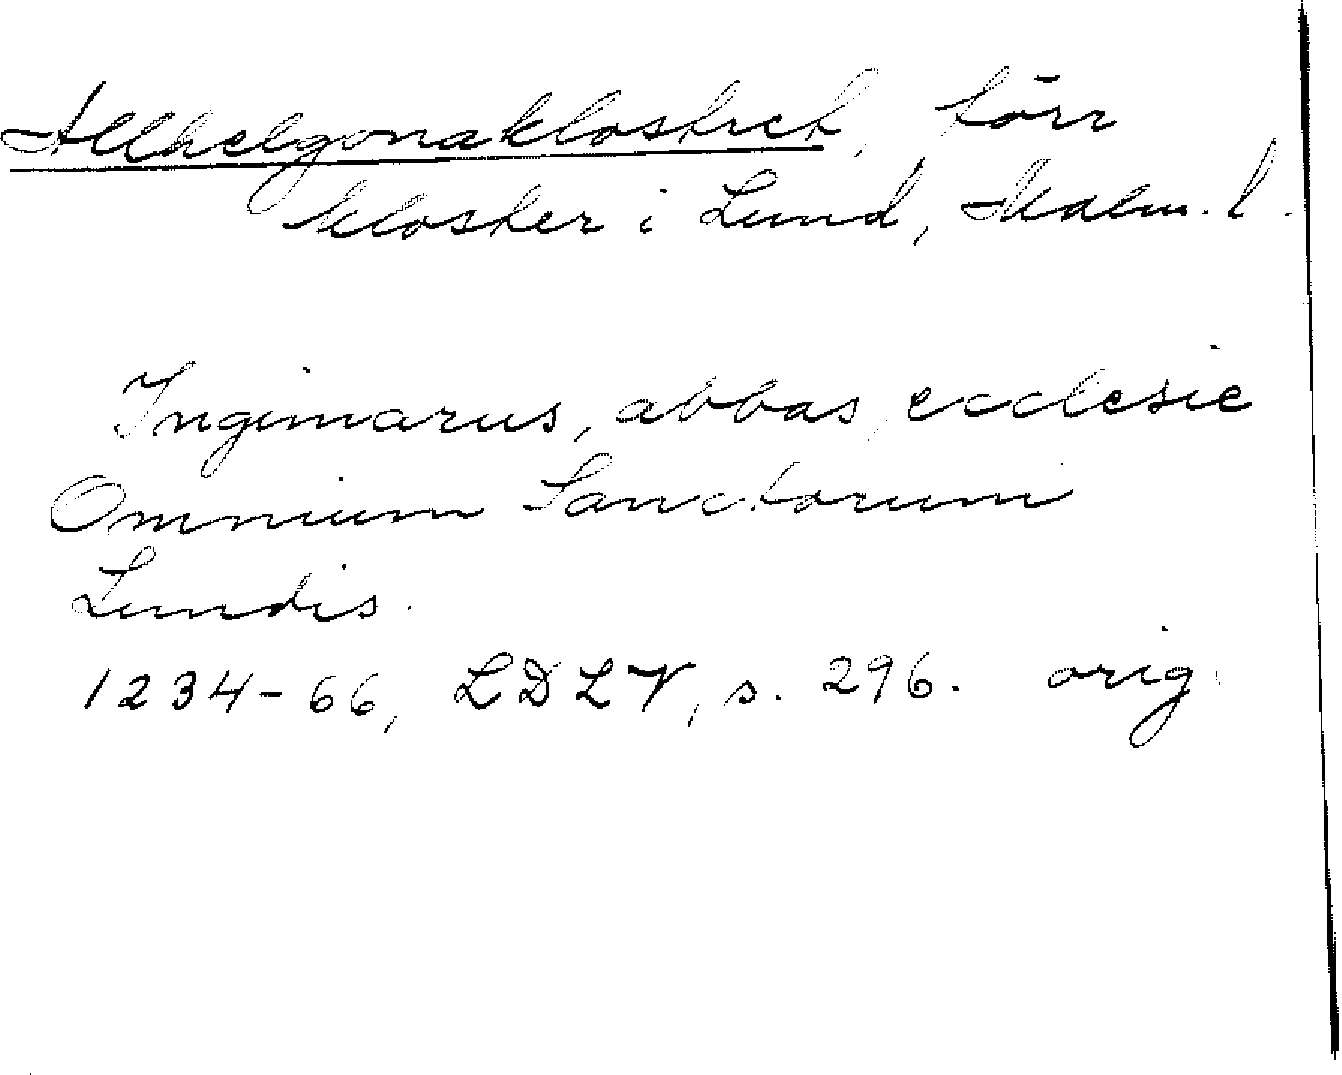 Allhelgonaklostret, förr
kloster i Lund, Malm. l.
Ingimarus, abbas ecclesie
Omnium Sanctorum
Lundis.
1234-66, LDLV, s. 296. orig.